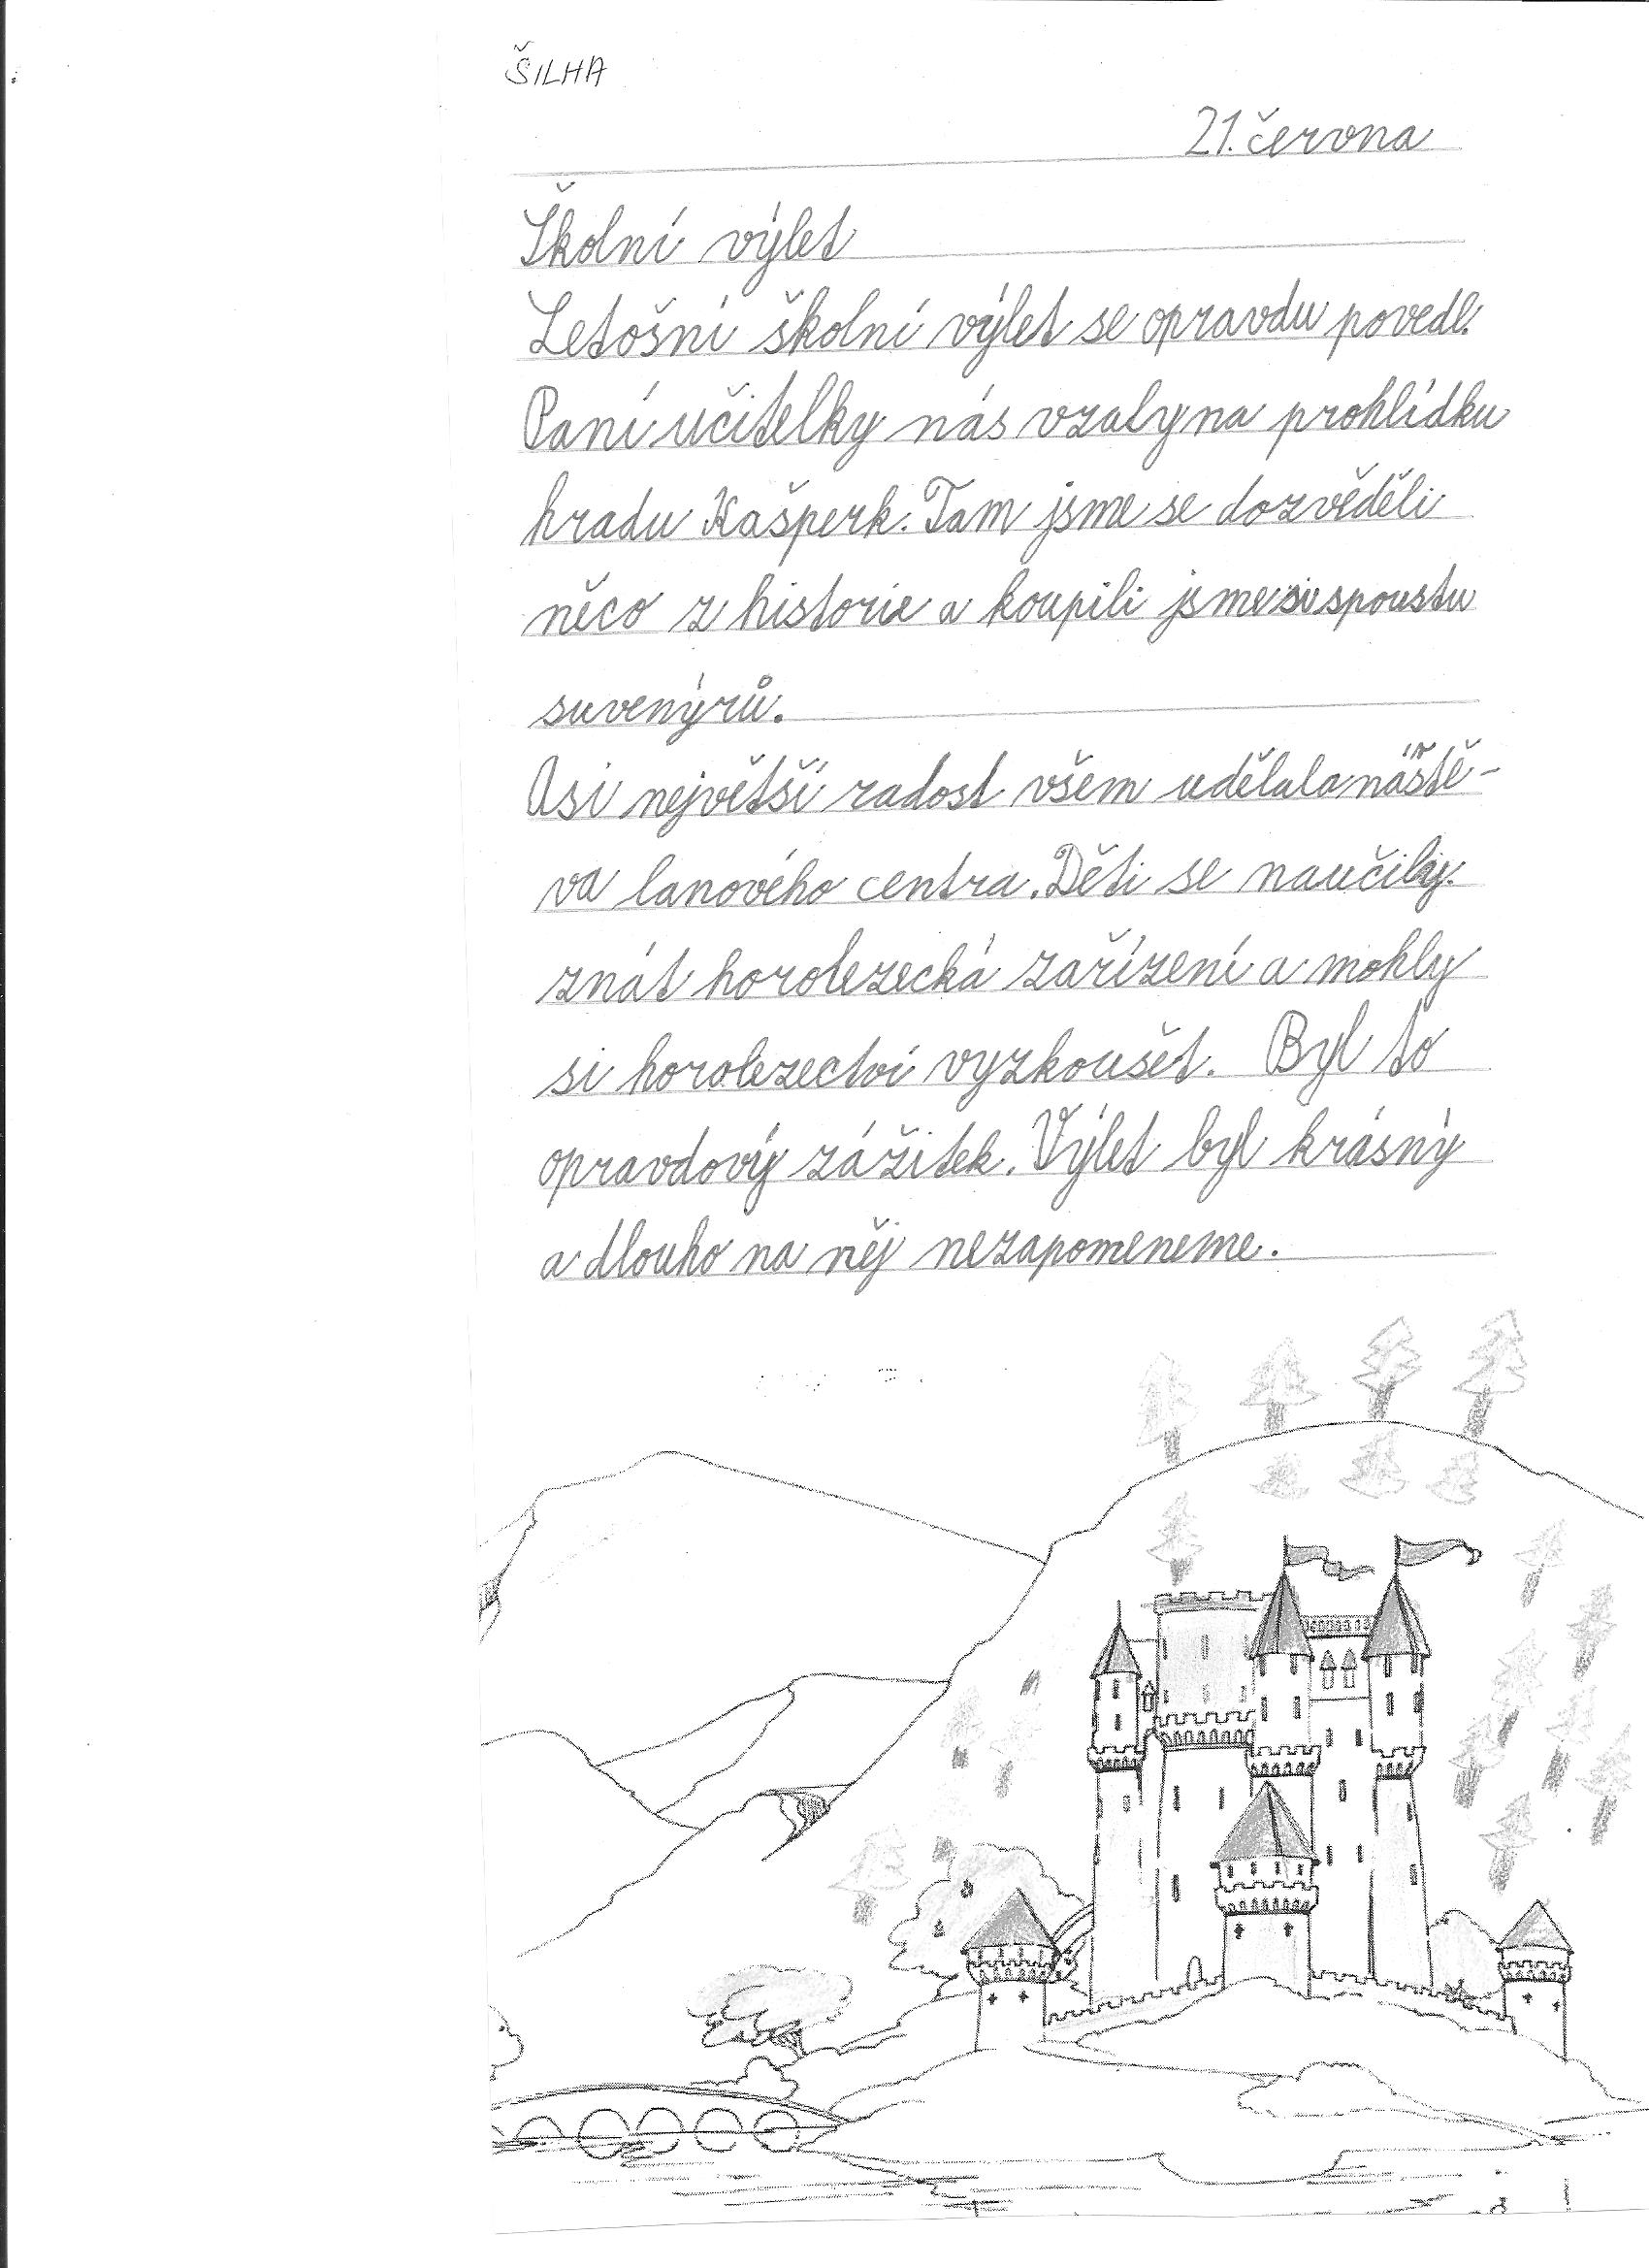 ŠILHA
21. června
Školní výlet
Letošní školní výlet se opravdu povedl.
Paní učitelky nás vzaly na prohlídku
hradu Kašperk. Tam jsme se dozvěděli
něco z historie a koupili jsme si spoustu
suvenýrů.
Asi největší radost všem udělala návště-
va lanového centra. Děti se naučily
znát horolezecká zařízení a mohly
si horolezectví vyzkoušet. Byl to
opravdový zážitek. Výlet byl krásný
a dlouho na něj nezapomeneme.